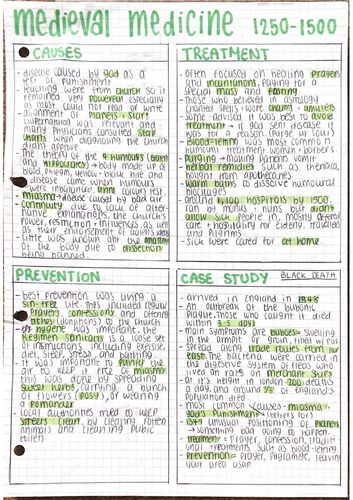 medieval medicine 1250-1500
CAUSES
- disease caused by god as a
test or punishment
- teaching were from church so it
remained very powerful especially
as most could not read or write
- alignment of planets + stars
supernatural was relevant and
many physicians consulted star
charts when diagnosing the church
didn't approve
- the theory of the 4 humours (Galen
and Hippocrates) - body made up of
blood, phlegm, yellow + black bile and
disease came when humours
were imbalanced
- miasma - disease caused by bad air
- continuity due to lack of alter-
native explanations, the church's
power, resources + influences, as well
as their enforcement of Galen's ideas
- little was known abt the
the body due to dissection
being banned
TREATMENT
- often focused on healing prayers
and incantations, paying for a
special mass and fasting
- those who believed in astrology
chanted spells + wore charms / amulets
- some advised it was best to avoid
treatment → if god sent disease it
was for a reason (purge ur soul)
- blood-letting was most common
humours treatment
- purging → making patients vomit
- herbal remedies such as theriaca
bought from apothecaries
- warm baths to dissolve humoural
blockages
- around 1,100 hospitals by 1500.
ran by monks + nuns but didn't
allow sick people in, mostly offered
care + hospitality for elderly, travellers
and pilgrims
- sick were cared for at home
PREVENTION
- best prevention was living a
sin-free life. this included regular
prayers, confessions and offering
tithes (donations) to the church
- hygiene was important. the
regimen sanitatis is a loose set
of instructions including exercise,
diet, sleep, stress, and bathing.
- it was important to purify the
air to keep it free of miasma
this was done by spreading
sweet herbs, carrying a bunch
of flowers (posy), or wearing
a pomander
- local authorities tried to keep
streets clean by clearing rotten
animals and cleaning public
toilets
CASE STUDY BLACK DEATH
- arrived in england in 1348
- An outbreak of the bubonic
plague. Those who caught it died
within 3-5 days
- main symptoms are buboes = swelling
in the armpit or groin, filled w/ pus
- spread along trade routes from far
east. The bacteria were carried in
the digestive system of fleas who
lived on rats on merchant ships
- at it's height in london 200 deaths
a day, and around 1/3 of england's
population died
- most common causes - miasma +
god's punishment
1345 unusual positioning of planets
→ something bad going to happen.
- treatment = prayer, confession, tradit-
ional treatments such as blood-letting
- prevention = prayer, pilgrimage, leaving
your area asap